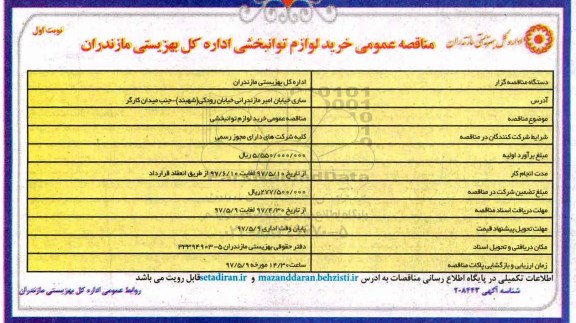 نوبت اول
اداره کل بهزیستی مازندران
مناقصه عمومی خرید لوازم توانبخشی اداره کل بهزیستی مازندران
دستگاه مناقصه گزار اداره کل بهزیستی مازندران
آدرس ساری خیابان امیر مازندرانی خیابان رودکی(شهبند)-جنب میدان کارگر
موضوع مناقصه مناقصه عمومی خرید لوازم توانبخشی
شرایط شرکت کنندگان در مناقصه کلیه شرکت های دارای مجوز رسمی
مبلغ برآورد اولیه ۵/۵۵۰/۰۰۰/۰۰۰ ریال
مدت انجام کار از تاریخ ۹۷/۵/۱۰ لغایت ۹۷/۶/۱۰ از طریق انعقاد قرارداد
مبلغ تضمین شرکت در مناقصه ۲۷۷/۵۰۰/۰۰۰ ریال
مهلت دریافت اسناد مناقصه از تاریخ ۹۷/۴/۳۰ لغایت ۹۷/۵/۹
مهلت تحویل پیشنهاد قیمت پایان وقت اداری ۹۷/۵/۹
مکان دریافتی و تحویل اسناد دفتر حقوقی بهزیستی مازندران ۵-۳۳۳۹۴۹۰۳
زمان ارزیابی و بازگشایی پاکات مناقصه ساعت ۱۴/۳۰ مورخه ۹۷/۵/۹
اطلاعات تکمیلی در پایگاه اطلاع رسانی مناقصات به ادرس mazanddaran.behzisti.ir و setadiran.ir قابل رویت می باشد
شناسه آگهی ۲۰۸۴۴۳ روابط عمومی اداره کل بهزیستی مازندران